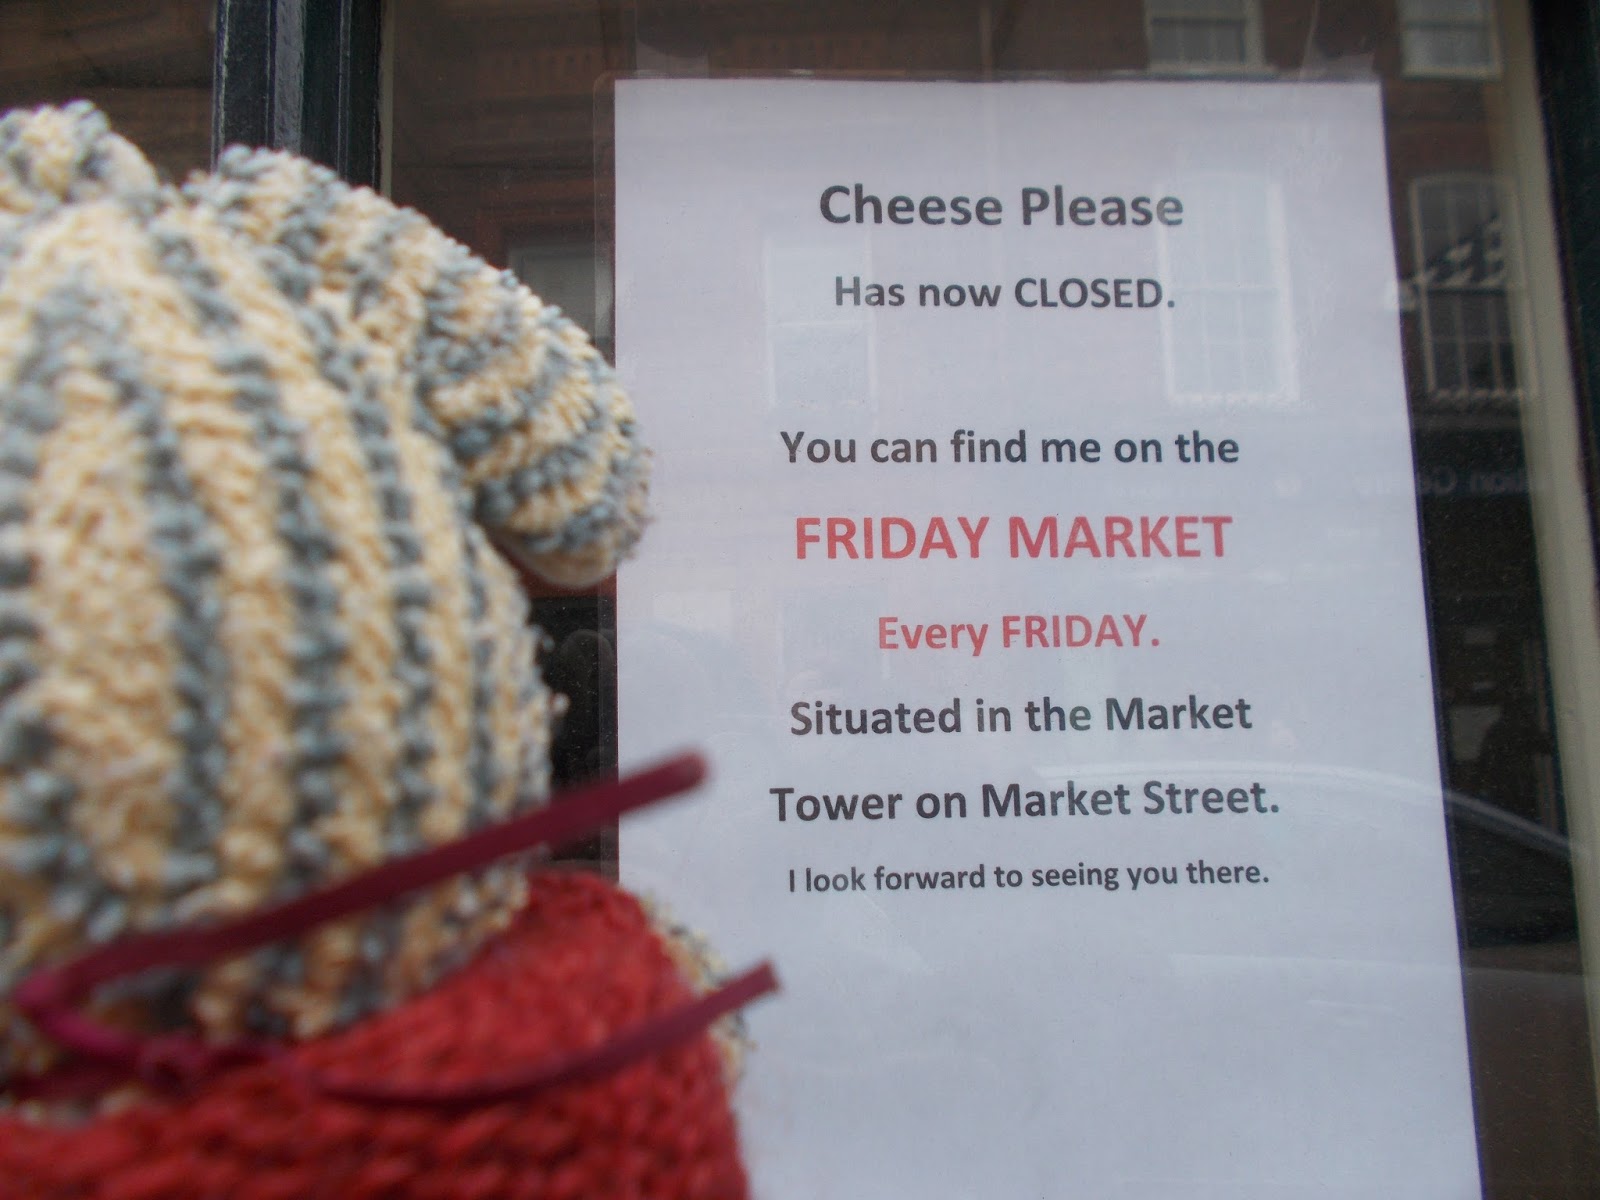 Cheese Please
Has now CLOSED.
You can find me on the
FRIDAY MARKET
Every FRIDAY.
Situated in the Market
Tower on Market Street.
I look forward to seeing you there.